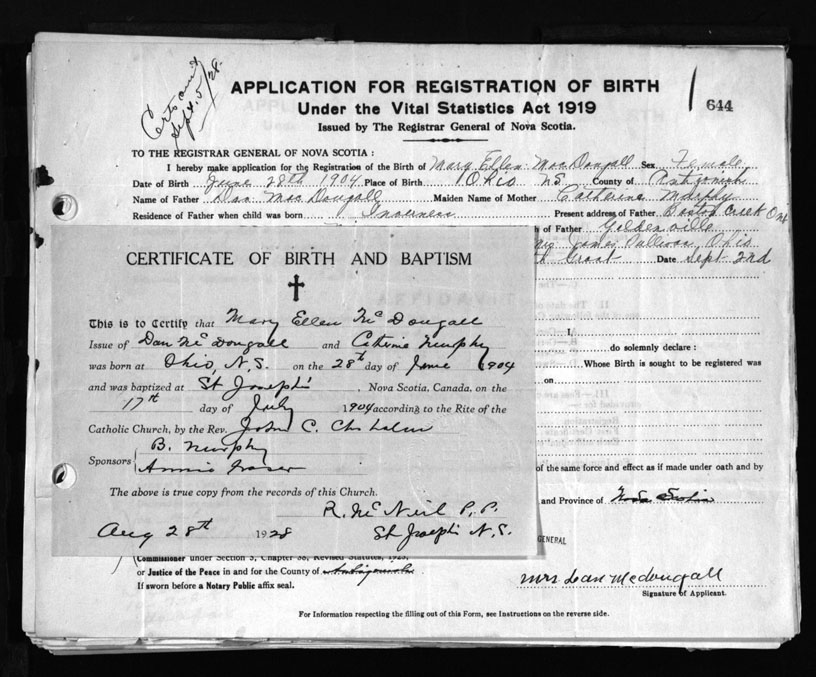 Certs am't
Sept. 5/28.
APPLICATION FOR REGISTRATION OF BIRTH
Under the Vital Statistics Act 1919
Issued by The Registrar General of Nova Scotia.
644
TO THE REGISTRAR GENERAL OF NOVA SCOTIA :
I hereby make application for the Registration of the Birth of Mary Ellen MacDougall Sex Female
Date of Birth June 28th 1904 Place of Birth Ohio NS County of Antigonish
Name of Father Dan MacDougall Maiden Name of Mother Catherine Murphy
Residence of Father when child was born Inverness Present address of Father Boston Creek Ont
h of Father Goldenville
James Sullivan, Ohio
Date Sept 2nd
CERTIFICATE OF BIRTH AND BAPTISM
This is to Certify that Mary Ellen McDougall
Issue of Dan McDougall and Catherine Murphy
was born at Ohio, N.S. on the 28th day of June 1904
and was baptized at St Joseph's, Nova Scotia, Canada, on the
17th day of July 1904 according to the Rite of the
Catholic Church, by the Rev. John C. Chisholm
Sponsors B. Murphy
Annie Fraser
The above is true copy from the records of this Church.
R. McNeil P.P.
Aug 28th 1928 St Joseph's N.S.
I,
do solemnly declare :
Whose Birth is sought to be registered was
on
of the same force and effect as if made under oath and by
and Province of Nova Scotia
GENERAL
Commissioner under Section 3, Chapter 38, Revised Statutes, 1923,
or Justice of the Peace in and for the County of Antigonish
If sworn before a Notary Public affix seal.
Mrs Dan McDougall
Signature of Applicant.
For Information respecting the filling out of this Form, see Instructions on the reverse side.